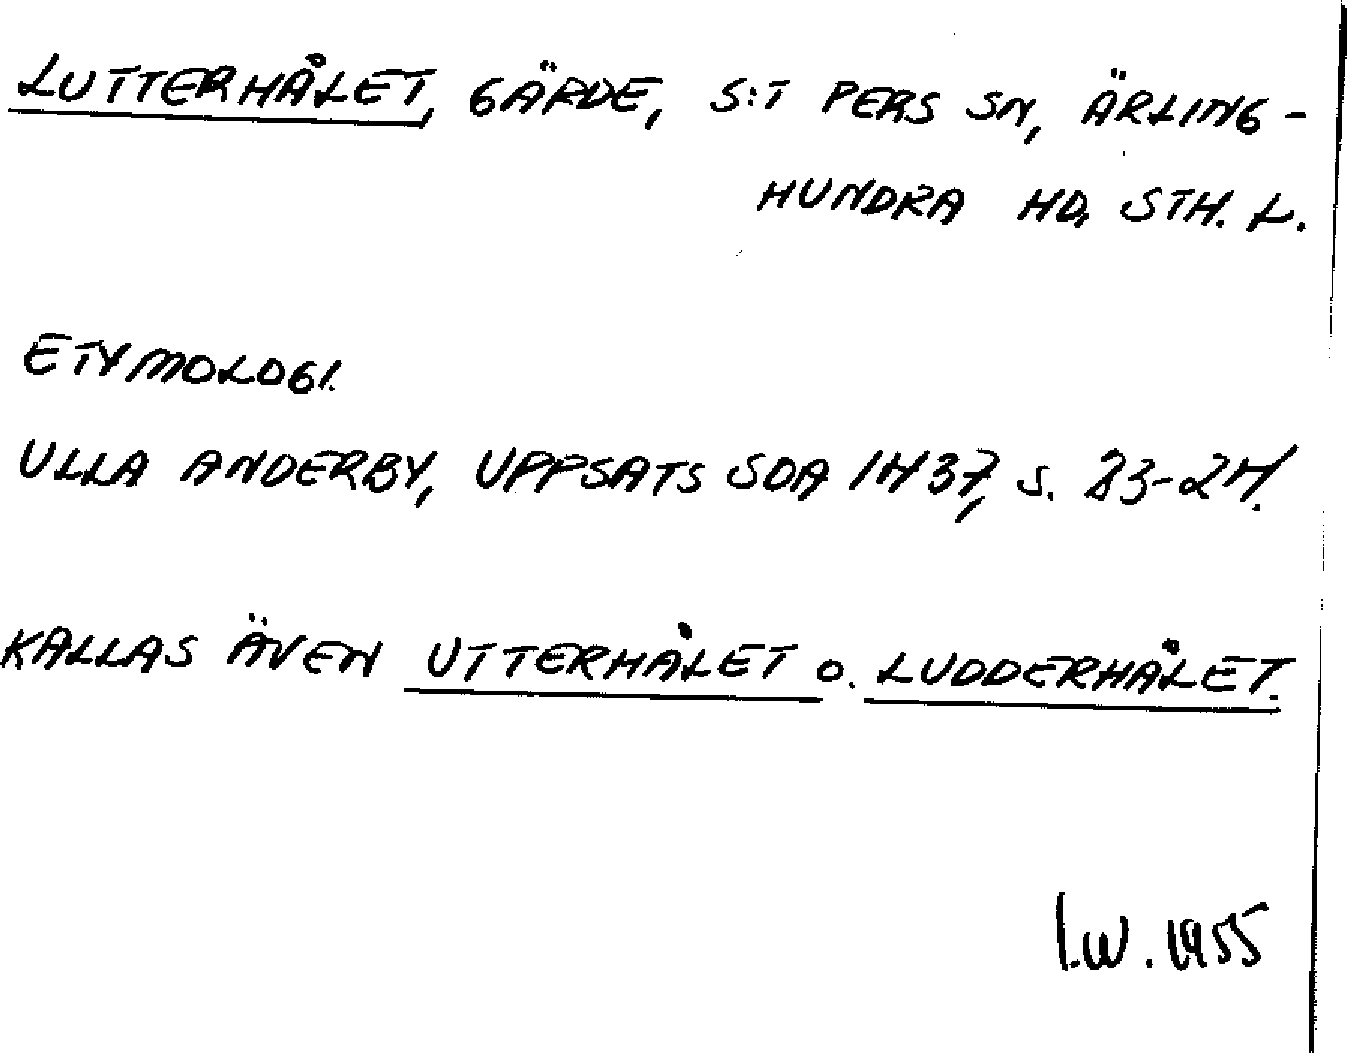 LUTTERHÅLET, GÄRDE, S:T PERS SN, ÄRLING-
HUNDRA HD, STH. L.
ETYMOLOGI.
ULLA ANDERBY, UPPSATS SOA 1437, s. 23-24.
KALLAS ÄVEN UTTERHÅLET o. LUDDERHÅLET.
I.W. 1955